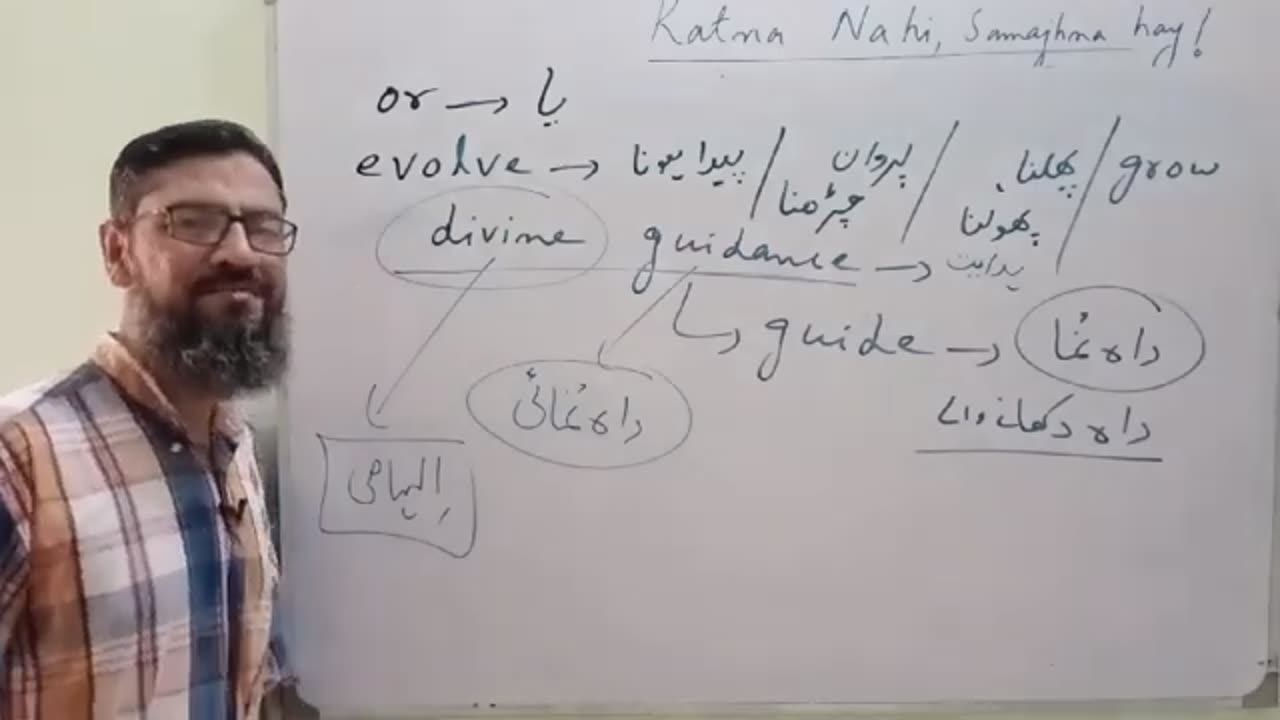 Ratna Nahi, Samajhna hay!
or → یا
evolve → پیدا ہونا / پروان چڑھنا / پھلنا، پھولنا / grow
divine guidance → ہدایت
guide → راہ نُما
راہ نُمائی
راہ دکھانے والے
اِلہامی